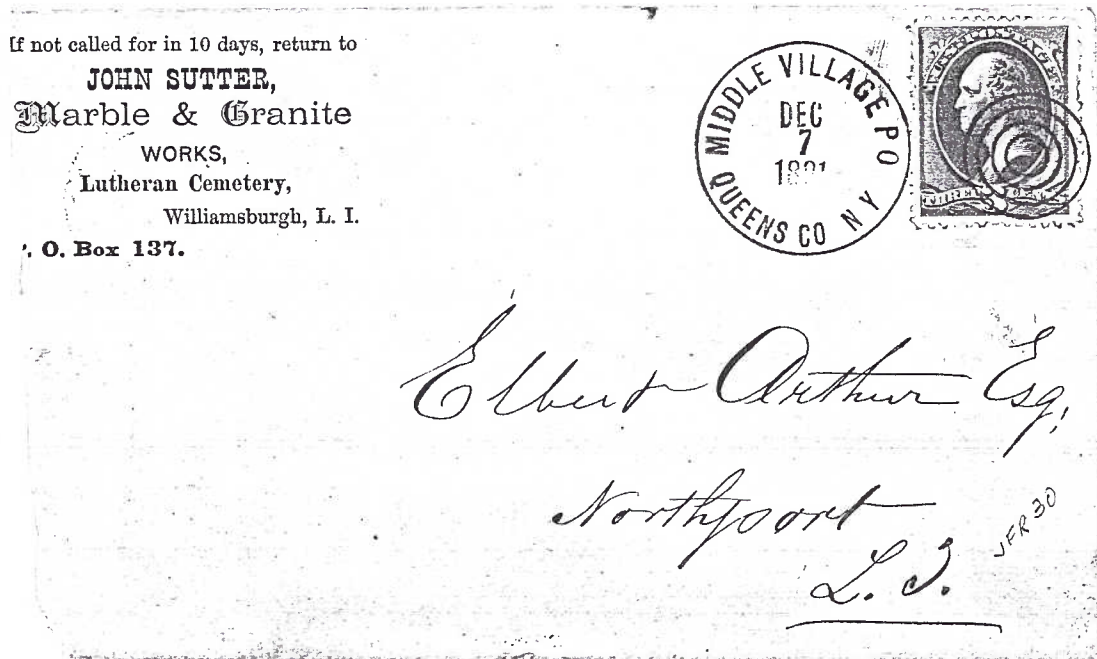 If not called for in 10 days, return to
JOHN SUTTER,
Marble & Granite
WORKS,
Lutheran Cemetery,
Williamsburgh, L. I.
. O. Box 137.
MIDDLE VILLAGE PO
DEC
7
QUEENS CO NY
Elbert Arthur Esq,
Northport
L. I.
JFR 30